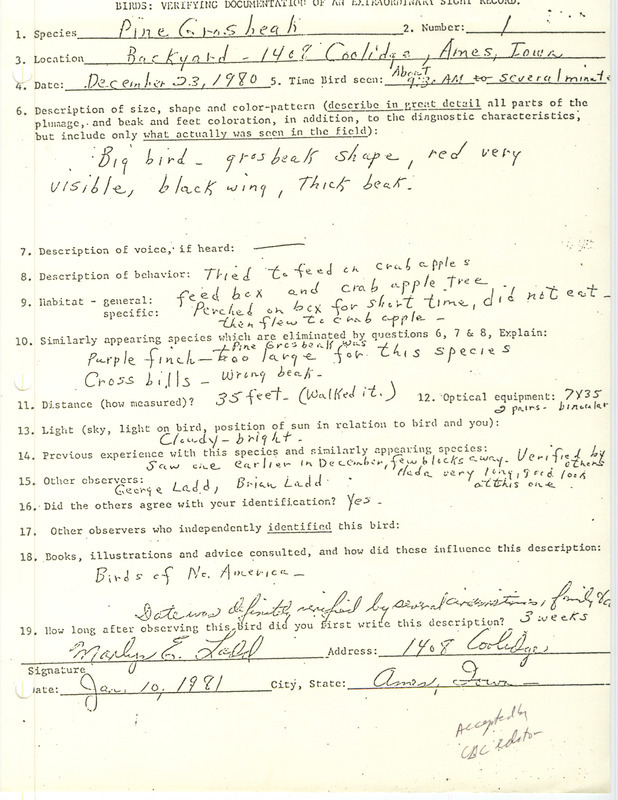 BIRDS: VERIFYING DOCUMENTATION OF AN EXTRAORDINARY SIGHT RECORD.
1. Species Pine Grosbeak 2. Number: 1
3. Location Backyard - 1408 Coolidge, Ames, Iowa
4. Date: December 23, 1980 5. Time Bird seen: About 9:30 AM to several minute
6. Description of size, shape and color-pattern (describe in great detail all parts of the
plumage, and beak and feet coloration, in addition, to the diagnostic characteristics,
but include only what actually was seen in the field):
Big bird - grosbeak shape, red very
visible, black wing, thick beak.
7. Description of voice, if heard: —
8. Description of behavior: Tried to feed on crab apples
9. Habitat - general: feed box and crab apple tree
specific: Perched on box for short time, did not eat -
then flew to crab apple -
10. Similarly appearing species which are eliminated by questions 6, 7 & 8, Explain:
Purple finch - Pine Grosbeak was too large for this species
Cross bills - wrong beak.
11. Distance (how measured)? 35 feet - (Walked it.) 12. Optical equipment: 7X35
2 pairs - binocular
13. Light (sky, light on bird, position of sun in relation to bird and you):
Cloudy - bright.
14. Previous experience with this species and similarly appearing species:
Saw one earlier in December, few blocks away. Verified by others
15. Other observers: Had a very long, good look
George Ladd, Brian Ladd at this one.
16. Did the others agree with your identification? Yes.
17. Other observers who independently identified this bird:
18. Books, illustrations and advice consulted, and how did these influence this description:
Birds of No. America -
Date was definitely verified by several circumstances, family
19. How long after observing this bird did you first write this description? 3 weeks
Marlys E. Ladd Address: 1408 Coolidge
Signature
Date: Jan. 10, 1981 City, State: Ames, Iowa
Accepted by
CBC editor